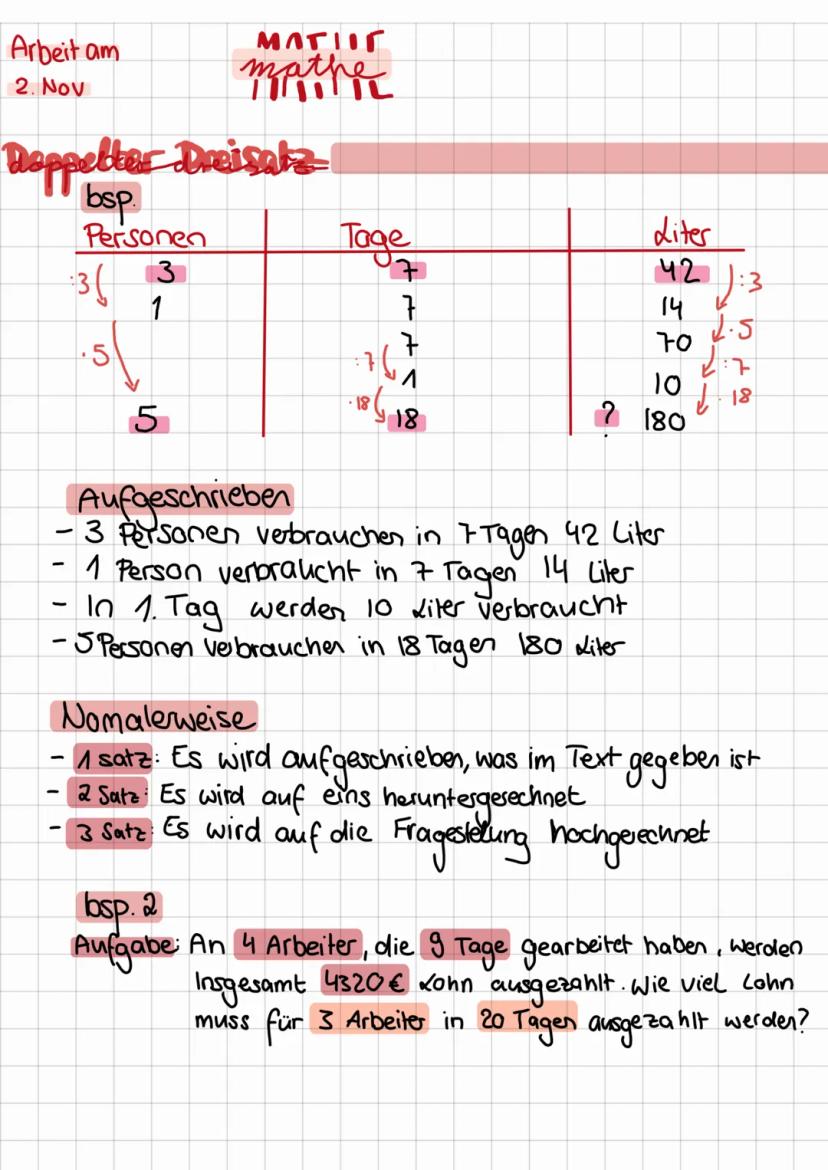 Arbeit am
2. Nov
mathe
doppelter Dreisatz
bsp.
Personen Tage Liter
:3 3 7 42 :3
1 7 14
·5 7 70 ·5
:7 1 10 :7
5 ·18 18 ? 180 ·18
Aufgeschrieben
- 3 Personen verbrauchen in 7 Tagen 42 Liter
- 1 Person verbraucht in 7 Tagen 14 Liter
- In 1. Tag werden 10 Liter verbraucht
- 5 Personen verbrauchen in 18 Tagen 180 Liter
Nomalerweise
- 1 satz: Es wird aufgeschrieben, was im Text gegeben ist
- 2 Satz: Es wird auf eins heruntergerechnet
- 3 Satz: Es wird auf die Fragestellung hochgerechnet
bsp. 2
Aufgabe: An 4 Arbeiter, die 9 Tage gearbeitet haben, werden
Insgesamt 4320 € Lohn ausgezahlt. Wie viel Lohn
muss für 3 Arbeiter in 20 Tagen ausgezahlt werden?